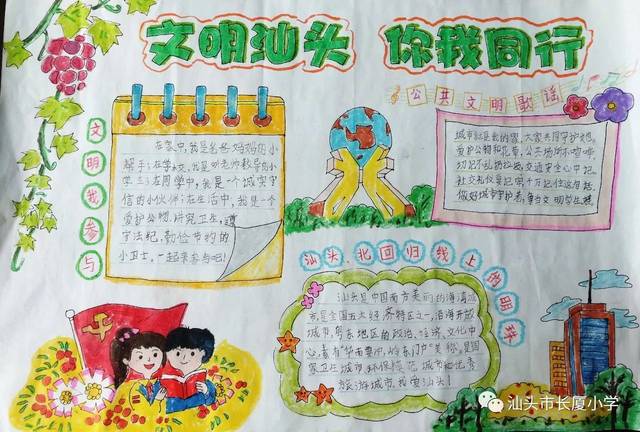 文明汕头 你我同行
文明我参与
在家中,我是爸爸妈妈的小
帮手;在学校,我是听老师教导的小
学生;在同学中,我是一个诚实守
信的小伙伴;在生活中,我是一个
爱护公物,讲究卫生,遵
守法纪,勤俭节约的
小卫士,一起来参与吧!
公共文明歌谣
城市就是我的家,大家共同守护她。
爱护公物和花草,公共场所不喧哗,
切记不乱扔垃圾,交通安全心中记,
社交礼仪要记得,千万记住这句话,
做好城市守护者,争当文明学生
汕头,北回归线上的明珠
汕头是中国南方美丽的海滨城
市,是全国五大经济特区之一,沿海开放
城市,粤东地区的政治、经济、文化中
心,素有"华南要冲,岭东门户"美称,是国
家卫生城市,环保模范城市和优秀
旅游城市,我爱汕头!
汕头市长厦小学